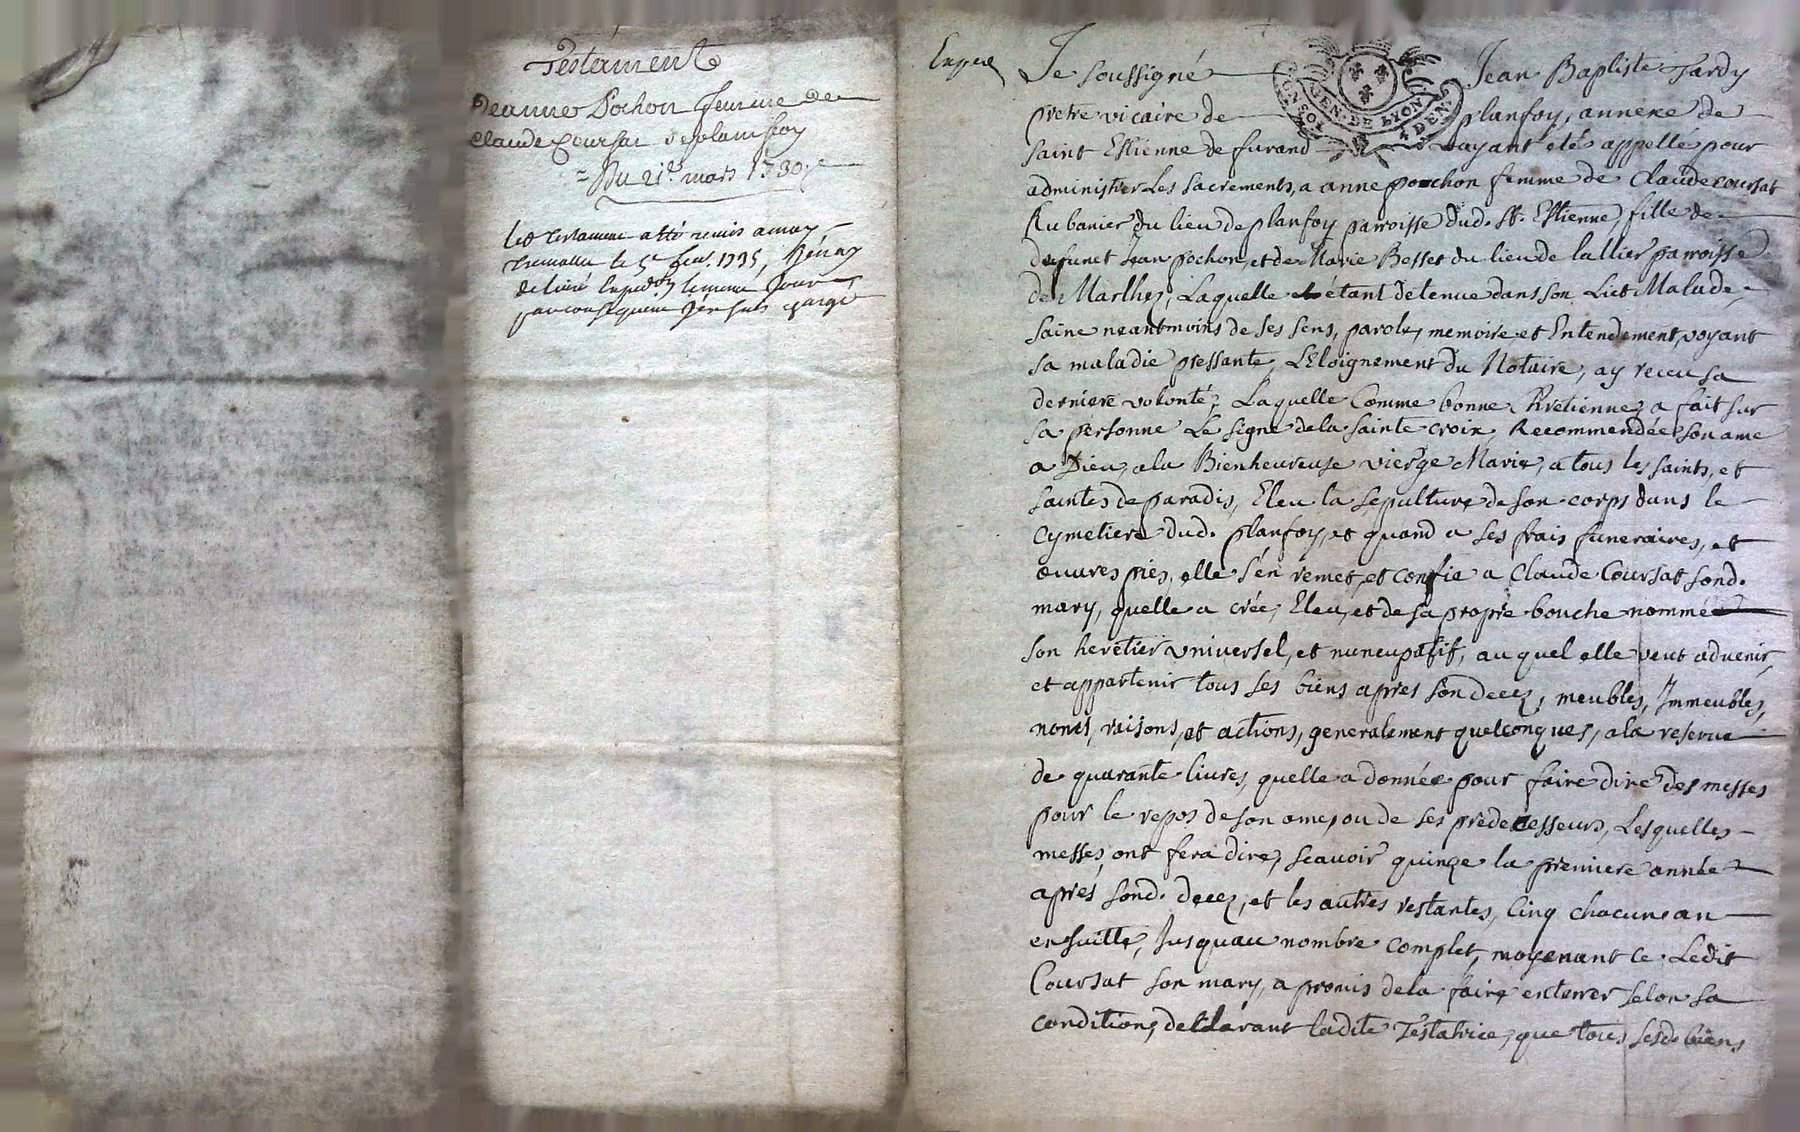 Testament
Jeanne Pochon femme de
Claude Coursat de planfoy
Du 21e. mars 1730
led. testament a été remis a moy
le 5e fev. 1735,
delivré expedon le meme jour
par consequent j'en suis chargé
Exped
Je soussigné Jean Baptiste Tardy
pretre vicaire de planfoy, annexe de
saint Estienne de furand ayant été appellé pour
administrer Les sacrements, a anne pochon femme de Claude coursat
Rubanier du lieu de planfoy paroisse dud. St. Estienne, fille de
defunct Jean pochon, et de Marie Besset du lieu de lallier parroisse
de Marlhes, Laquelle étant detenue dans son Lict Malade,
saine neantmoins de ses sens, parole, memoire et Entendement, voyant
sa maladie pressante, L'Eloignement du Notaire, ay receu sa
derniere volonté, Laquelle Comme bonne Kretienne, a fait sur
sa personne Le signe de la sainte croix, Recommendée son ame
a Dieu, a la Bienheureuse vierge Marie, a tous les saints, et
saintes de paradis, Eleu la sepulture de son corps dans le
cymetiere dud. planfoy, et quand a ses frais funeraires, et
œuvres pies, elle s'en remet, et confie a Claude Coursat sond.
mary, quelle a crée, Eleu, et de sa propre bouche nommé
son heretier universel, et nuncupatif, au quel elle veut advenir,
et appartenir tous ses biens apres son decez, meubles, Immeubles,
noms, raisons, et actions, generalement quelconques, a la reserve
de quarante livres, quelle a donnée pour faire dire des messes
pour le repos de son ame, ou de ses predecesseurs, Lesquelles
messes, ont fera dire, scavoir quinze la premiere année
apres sond. decez, et les autres restantes, Cinq chacune an
en suitte, Jusquau nombre complet, moyenant ce Ledit
Coursat son mary, a promis de la faire enterrer selon sa
condition, declarant ladite Testatrice, que tous sesd. biens
GEN. DE LYON